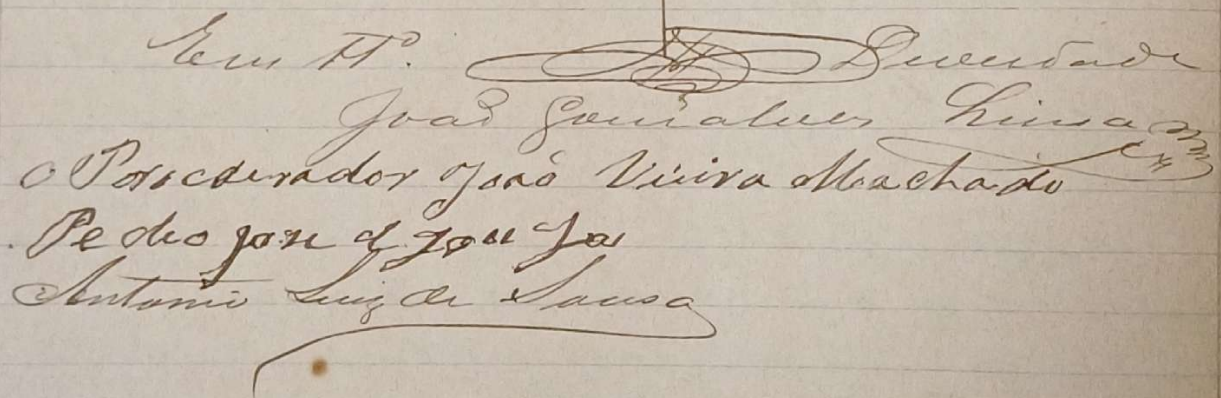 Em tº. da verdade
João Gonçalves Lima
O Porcoerador João Vieira Machado
Pedro José de Souza
Antonio Luiz de Sousa